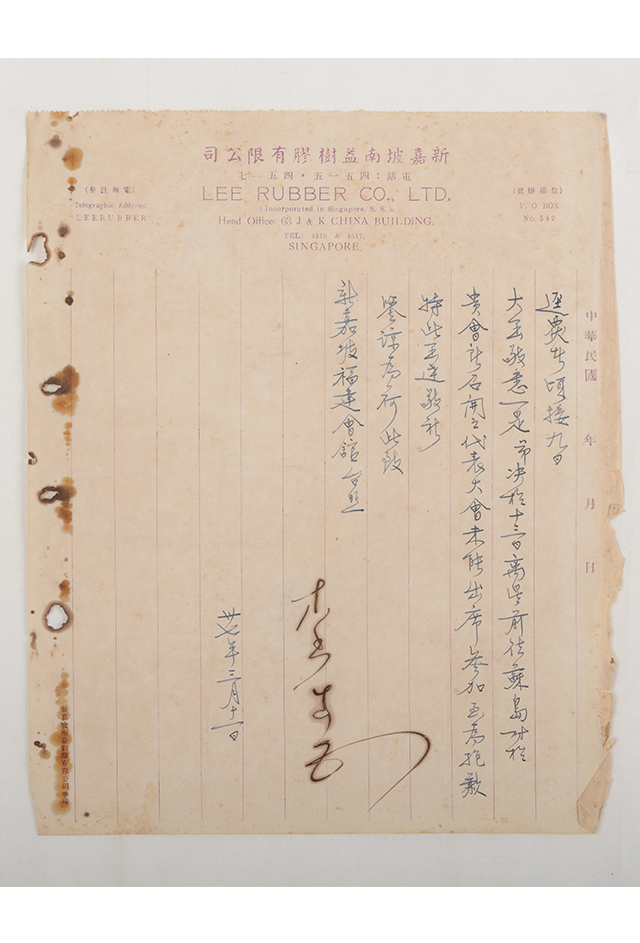 新嘉坡南益樹膠有限公司
電話：四五一五・四五一七
(電報註冊)
Telegraphic Address:
"LEERUBBER"
LEE RUBBER CO., LTD.
(Incorporated in Singapore, S. S.)
Head Office: 63 J & K CHINA BUILDING,
TEL: 4515 & 4517.
SINGAPORE.
(信箱掛號)
P. O BOX
No. 542
中華民國 年 月 日
逕覆者頃接九日
大函敬悉一是弟決於十二日離星前往蘇島對於
貴會所召開之代表大會未能出席參加至為抱歉
特此函達敬祈
鑒諒為荷此致
新嘉坡福建會館台照
廿七年三月十一日